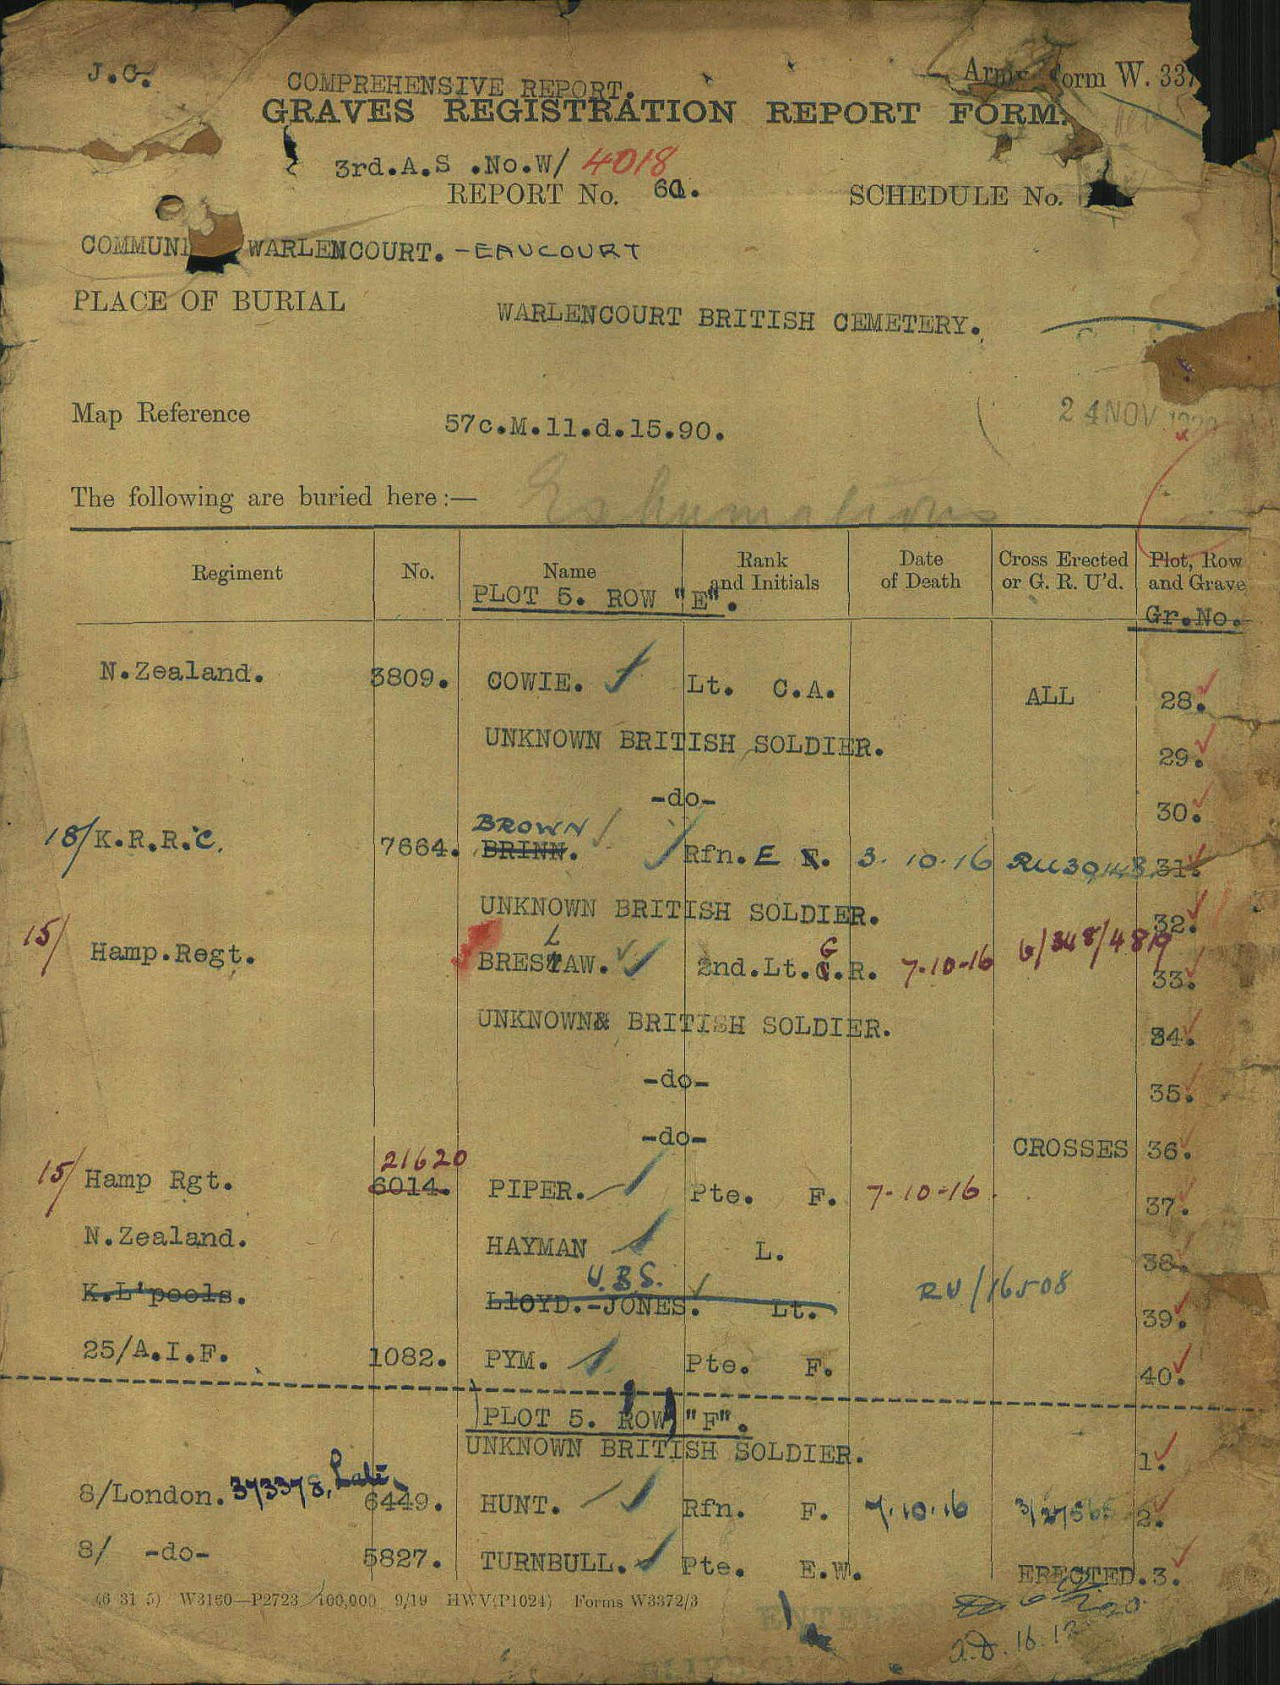 J.C.
COMPREHENSIVE REPORT.
Army Form W. 337
GRAVES REGISTRATION REPORT FORM.
3rd.A.S .No.W/ 4018
REPORT No. 6a.
SCHEDULE No.
COMMUN WARLENCOURT. -EAUCOURT
PLACE OF BURIAL
WARLENCOURT BRITISH CEMETERY.
Map Reference
57c.M.11.d.15.90.
24 NOV 1920
The following are buried here:—
Exhumations
Regiment No. Name Rank and Initials Date of Death Cross Erected or G. R. U'd. Plot, Row and Grave
PLOT 5. ROW "E".
Gr.No.
N.Zealand. 3809. COWIE. Lt. C.A. ALL 28.
UNKNOWN BRITISH SOLDIER. 29.
-do- 30.
BROWN
18/ K.R.R.C. 7664. BRINN. Rfn. E F. 3. 10.16 31.
UNKNOWN BRITISH SOLDIER. 32.
15/ Hamp.Regt. BRESLAW. 2nd.Lt. G.R. 7-10-16 6/348/4819 33.
UNKNOWN& BRITISH SOLDIER. 34.
-do- 35.
-do- CROSSES 36.
21620
15/ Hamp Rgt. 6014. PIPER. Pte. F. 7-10-16. 37.
N.Zealand. HAYMAN L. 38.
U.B.S.
K.L'pools. LlOYD.-JONES. Lt. RU/16508 39.
25/A.I.F. 1082. PYM. Pte. F. 40.
PLOT 5. ROW "F".
UNKNOWN BRITISH SOLDIER. 1.
8/London. 373378, Late 6449. HUNT. Rfn. F. 7.10.16 2.
8/ -do- 5827. TURNBULL. Pte. E.W. ERECTED. 3.
(6 31 5) W3160—P2723 100,000 9/19 HWV(P1024) Forms W3372/3